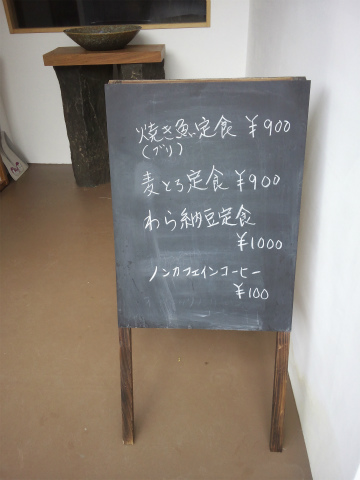 焼き魚定食 ¥900
(ブリ)
麦とろ定食 ¥900
わら納豆定食
¥1000
ノンカフェインコーヒー
¥100